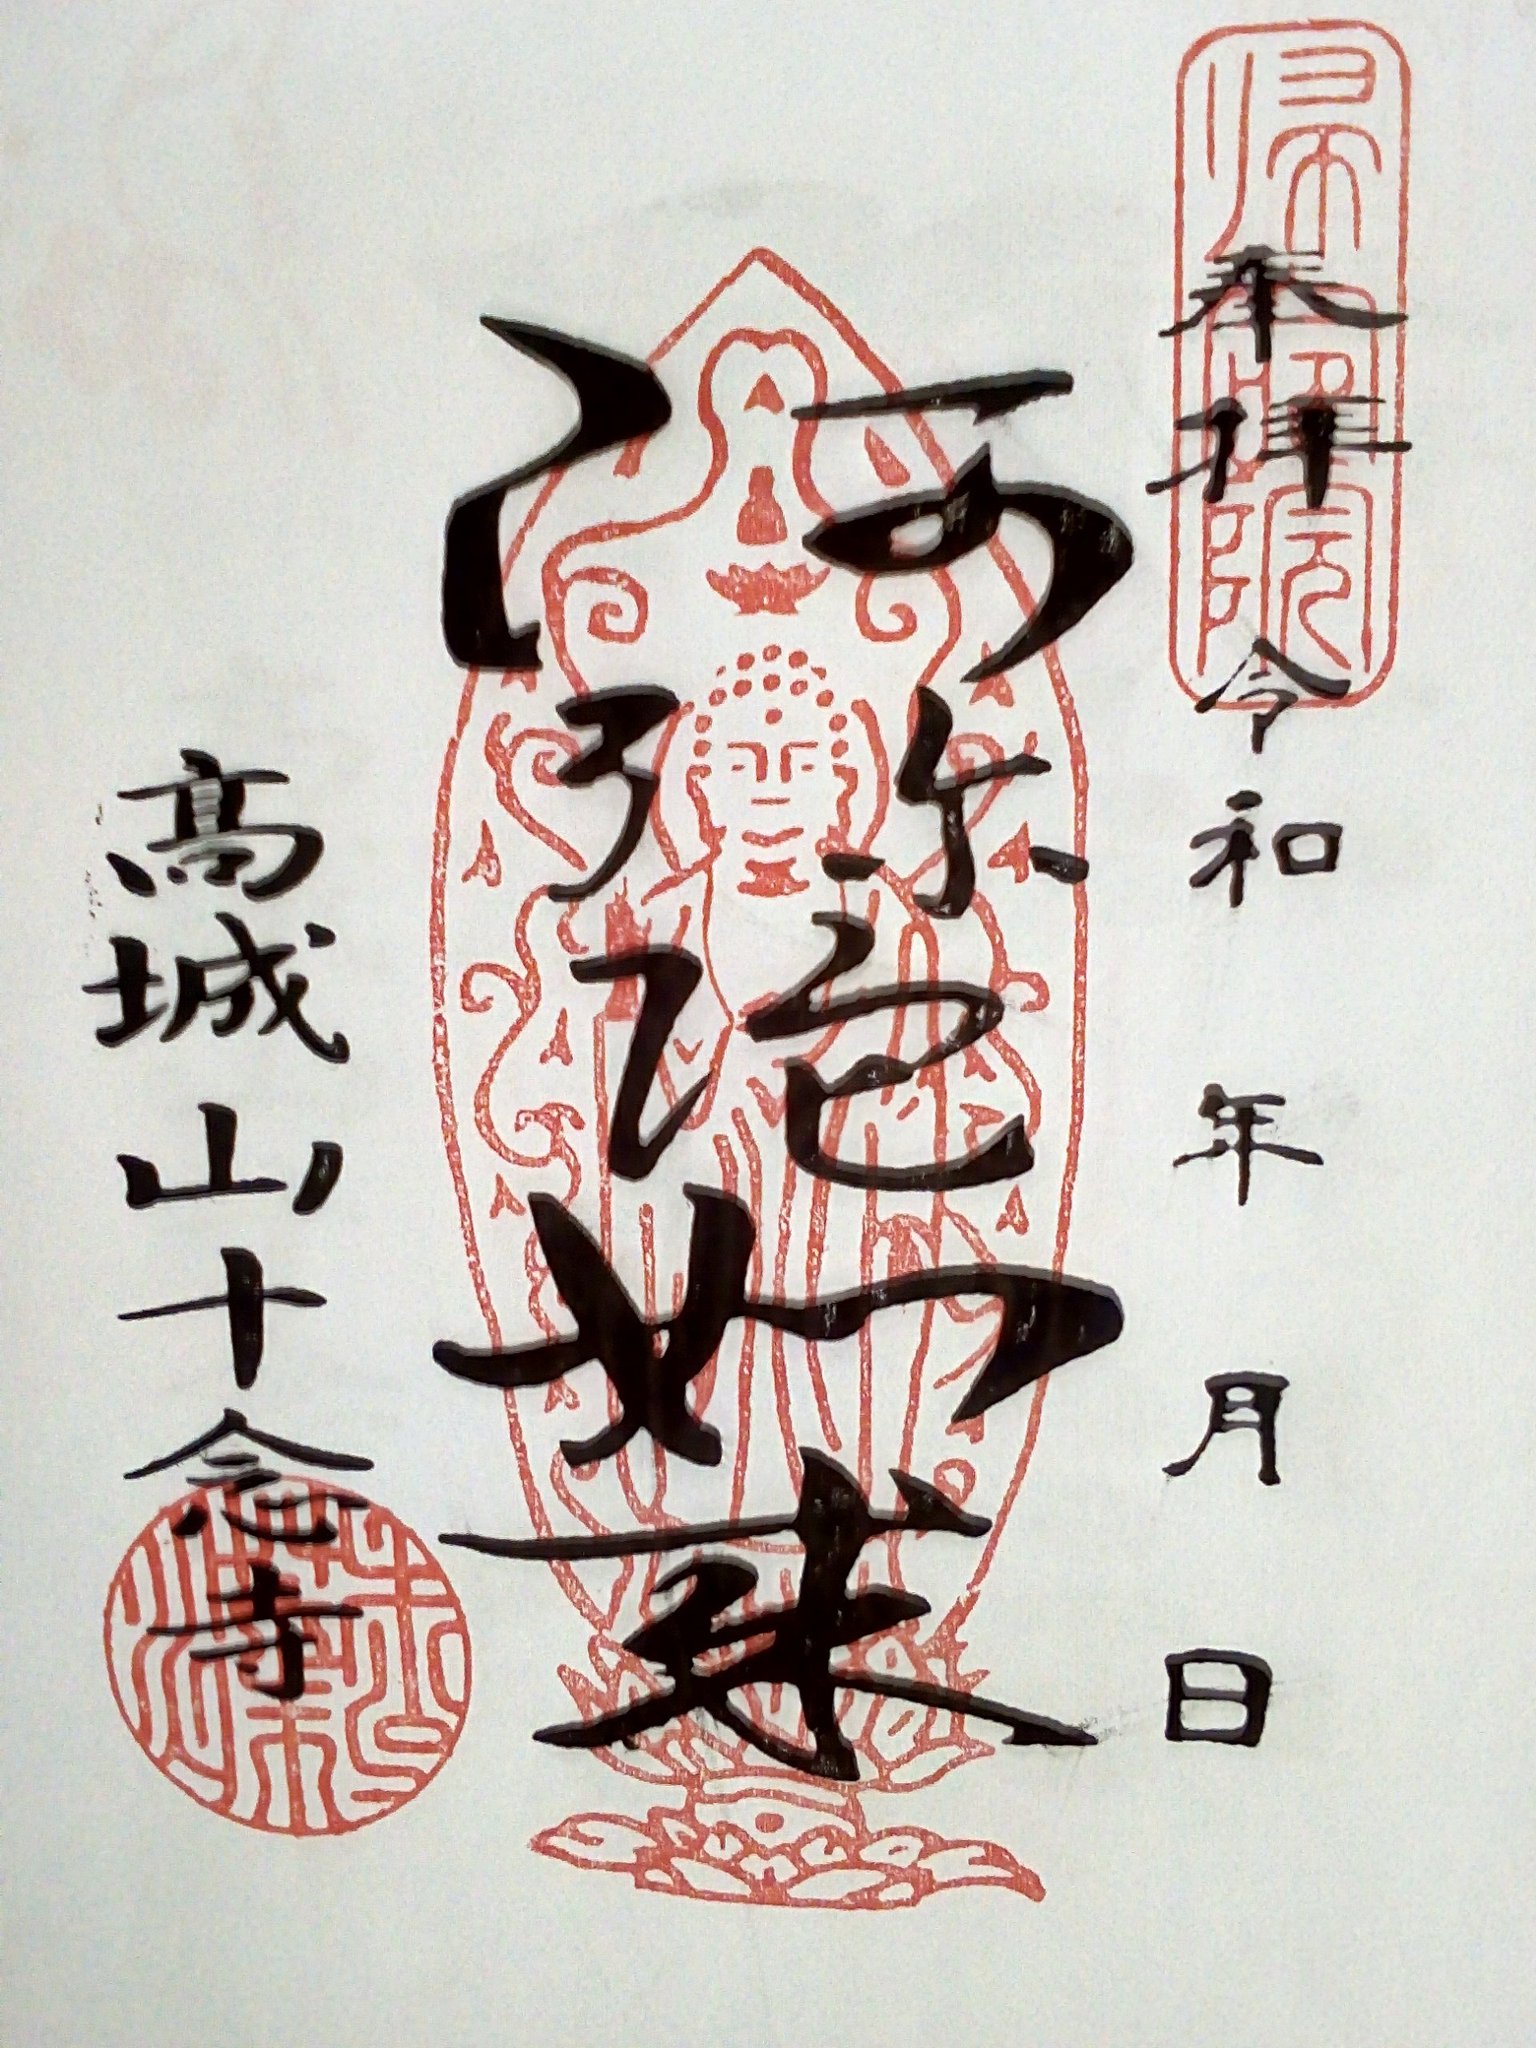 帰命院
奉拝 令和 年 月 日
阿弥陀如来
高城山十念寺